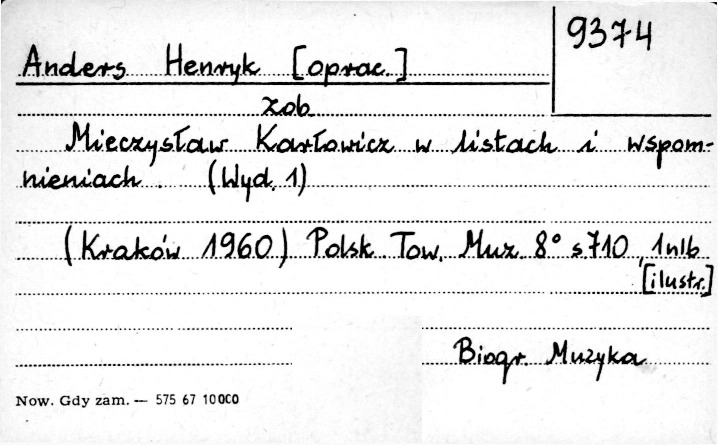 9374
Anders Henryk [oprac.]
zob.
Mieczysław Karłowicz w listach i wspom-
nieniach. (Wyd. 1)
(Kraków 1960) Polsk. Tow. Muz. 8° s 710, 1 nlb
[ilustr.]
Biogr. Muzyka
Now. Gdy zam. — 575 67 10000